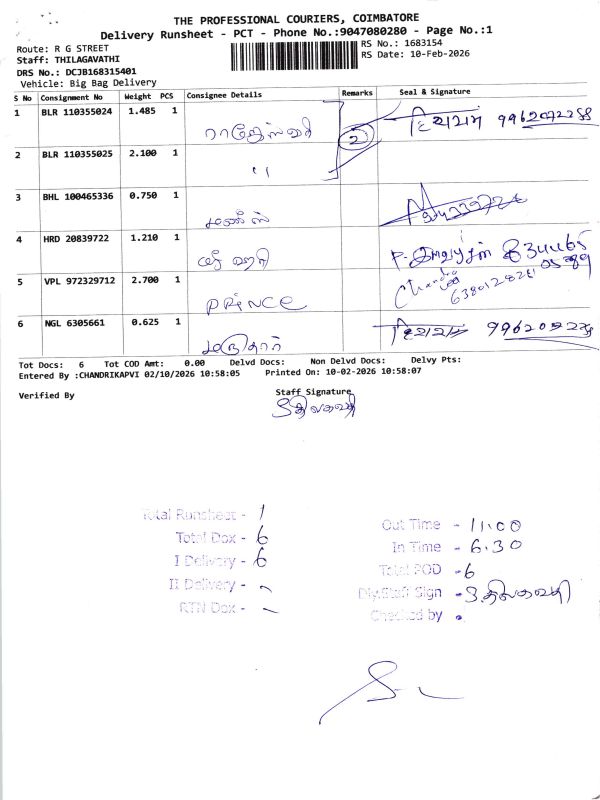 THE PROFESSIONAL COURIERS, COIMBATORE
Delivery Runsheet - PCT - Phone No.:9047080280 - Page No.:1
Route: R G STREET
RS No.: 1683154
Staff: THILAGAVATHI
RS Date: 10-Feb-2026
DRS No.: DCJB168315401
Vehicle: Big Bag Delivery
S No Consignment No Weight PCS Consignee Details Remarks Seal & Signature
1 BLR 110355024 1.485 1 ராஜேஸ்வரி 2
2 BLR 110355025 2.100 1 "
3 BHL 100465336 0.750 1
4 HRD 20839722 1.210 1 ஸ்ரீ ஹரி
5 VPL 972329712 2.700 1 PRINCE Chandra
6 NGL 6305661 0.625 1
Tot Docs: 6 Tot COD Amt: 0.00 Delvd Docs: Non Delvd Docs: Delvy Pts:
Entered By :CHANDRIKAPVI 02/10/2026 10:58:05 Printed On: 10-02-2026 10:58:07
Verified By
Staff Signature
திலகவதி
Total Runsheet - 1
Total Dox - 6
I Delivery - 6
II Delivery -
RTN Dox -
Out Time - 11:00
In Time - 6.30
Total POD - 6
Dly.Staff Sign - S.திலகவதி
Checked by